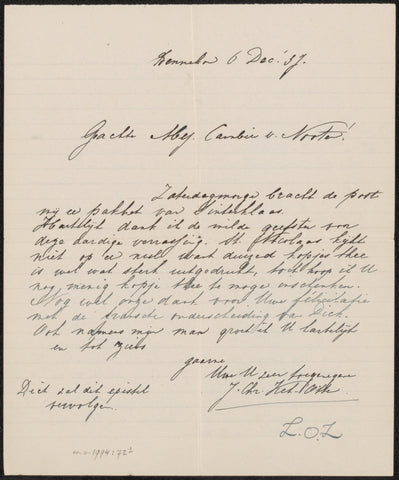 Bennebr 6 Dec.' 37.
Geachte Mej. Cambier v. Nooten!
Zaterdagmorge bracht de post
mij ee pakket van Sinterklaas.
Hartelijk dank ik de milde geefster voor
deze aardige verrassing. St. Nicolaas kijkt
niet op ee niet want duizend kopjes thee
is wel wat sterk uitgedrukt, toch hoop ik U
nog menig kopje thee te moge inschenken.
Nog wel onze dank voor Uwe felicitatie
met de Fransche onderscheiding va Dick.
Ook namens mijn man groet ik U hartelijk
en tot ziens
gaarne
Uwe U zeer toegenegene
J. Chr. Ket-
Dick zal dit epistel
vervolgen.
Z.O.Z
m.v. 1994:72²